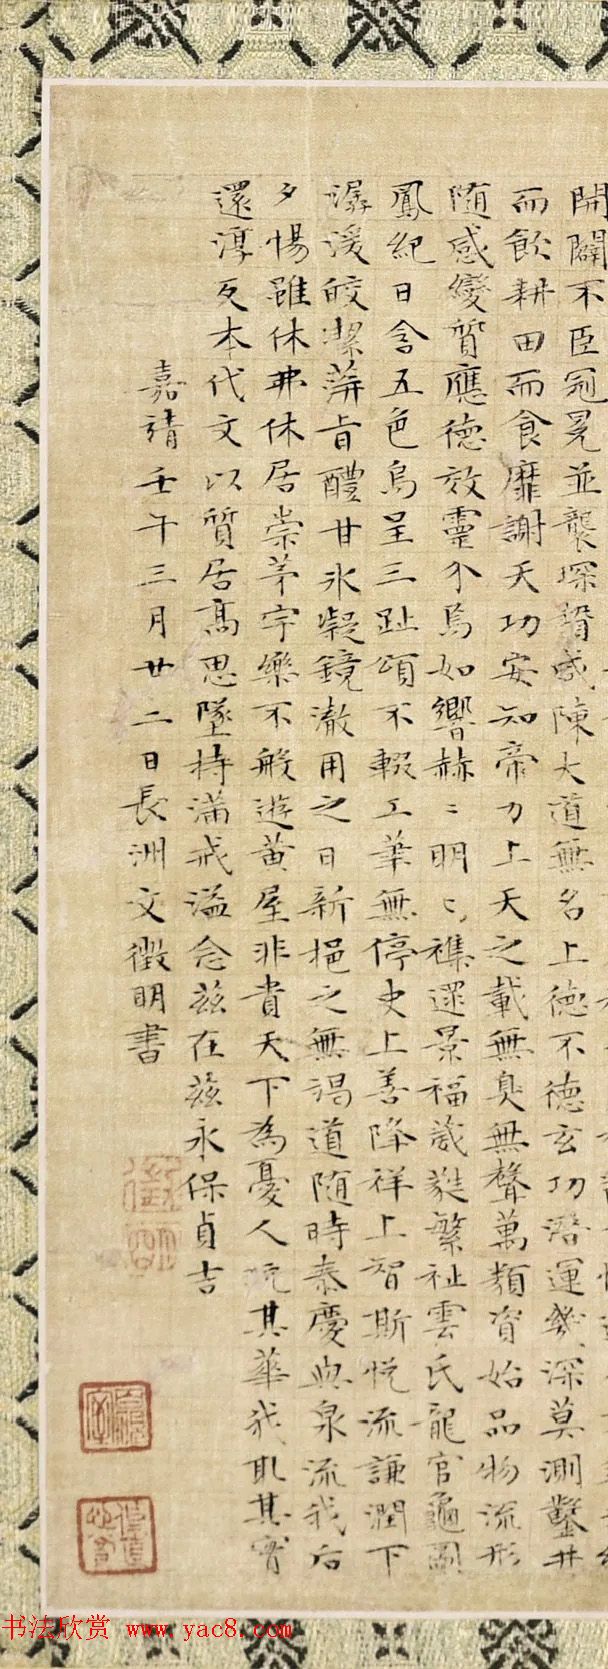 開闢不臣冠冕並襲琛贄咸陳大道無名上德不德玄功潛運幾深莫測鑿井
而飲耕田而食靡謝天功安知帝力上天之載無臭無聲萬類資始品物流形
随感變質應德效靈介焉如響赫〻明〻襍遝景福葳蕤繁祉雲氏龍官龜圖
鳳紀日含五色烏呈三趾頌不輟工筆無停史上善降祥上智斯悅流謙潤下
潺湲皎潔蓱旨醴甘氷凝鏡澈用之日新挹之無竭道随時泰慶與泉流我后
夕惕雖休弗休居崇茅宇樂不般遊黃屋非貴天下為憂人玩其華我取其實
還淳反本代文以質居高思墜持滿戒溢念兹在兹永保貞吉
嘉靖壬午三月廿二日長洲文徵明書
徵明
书法欣赏 www.yac8.com